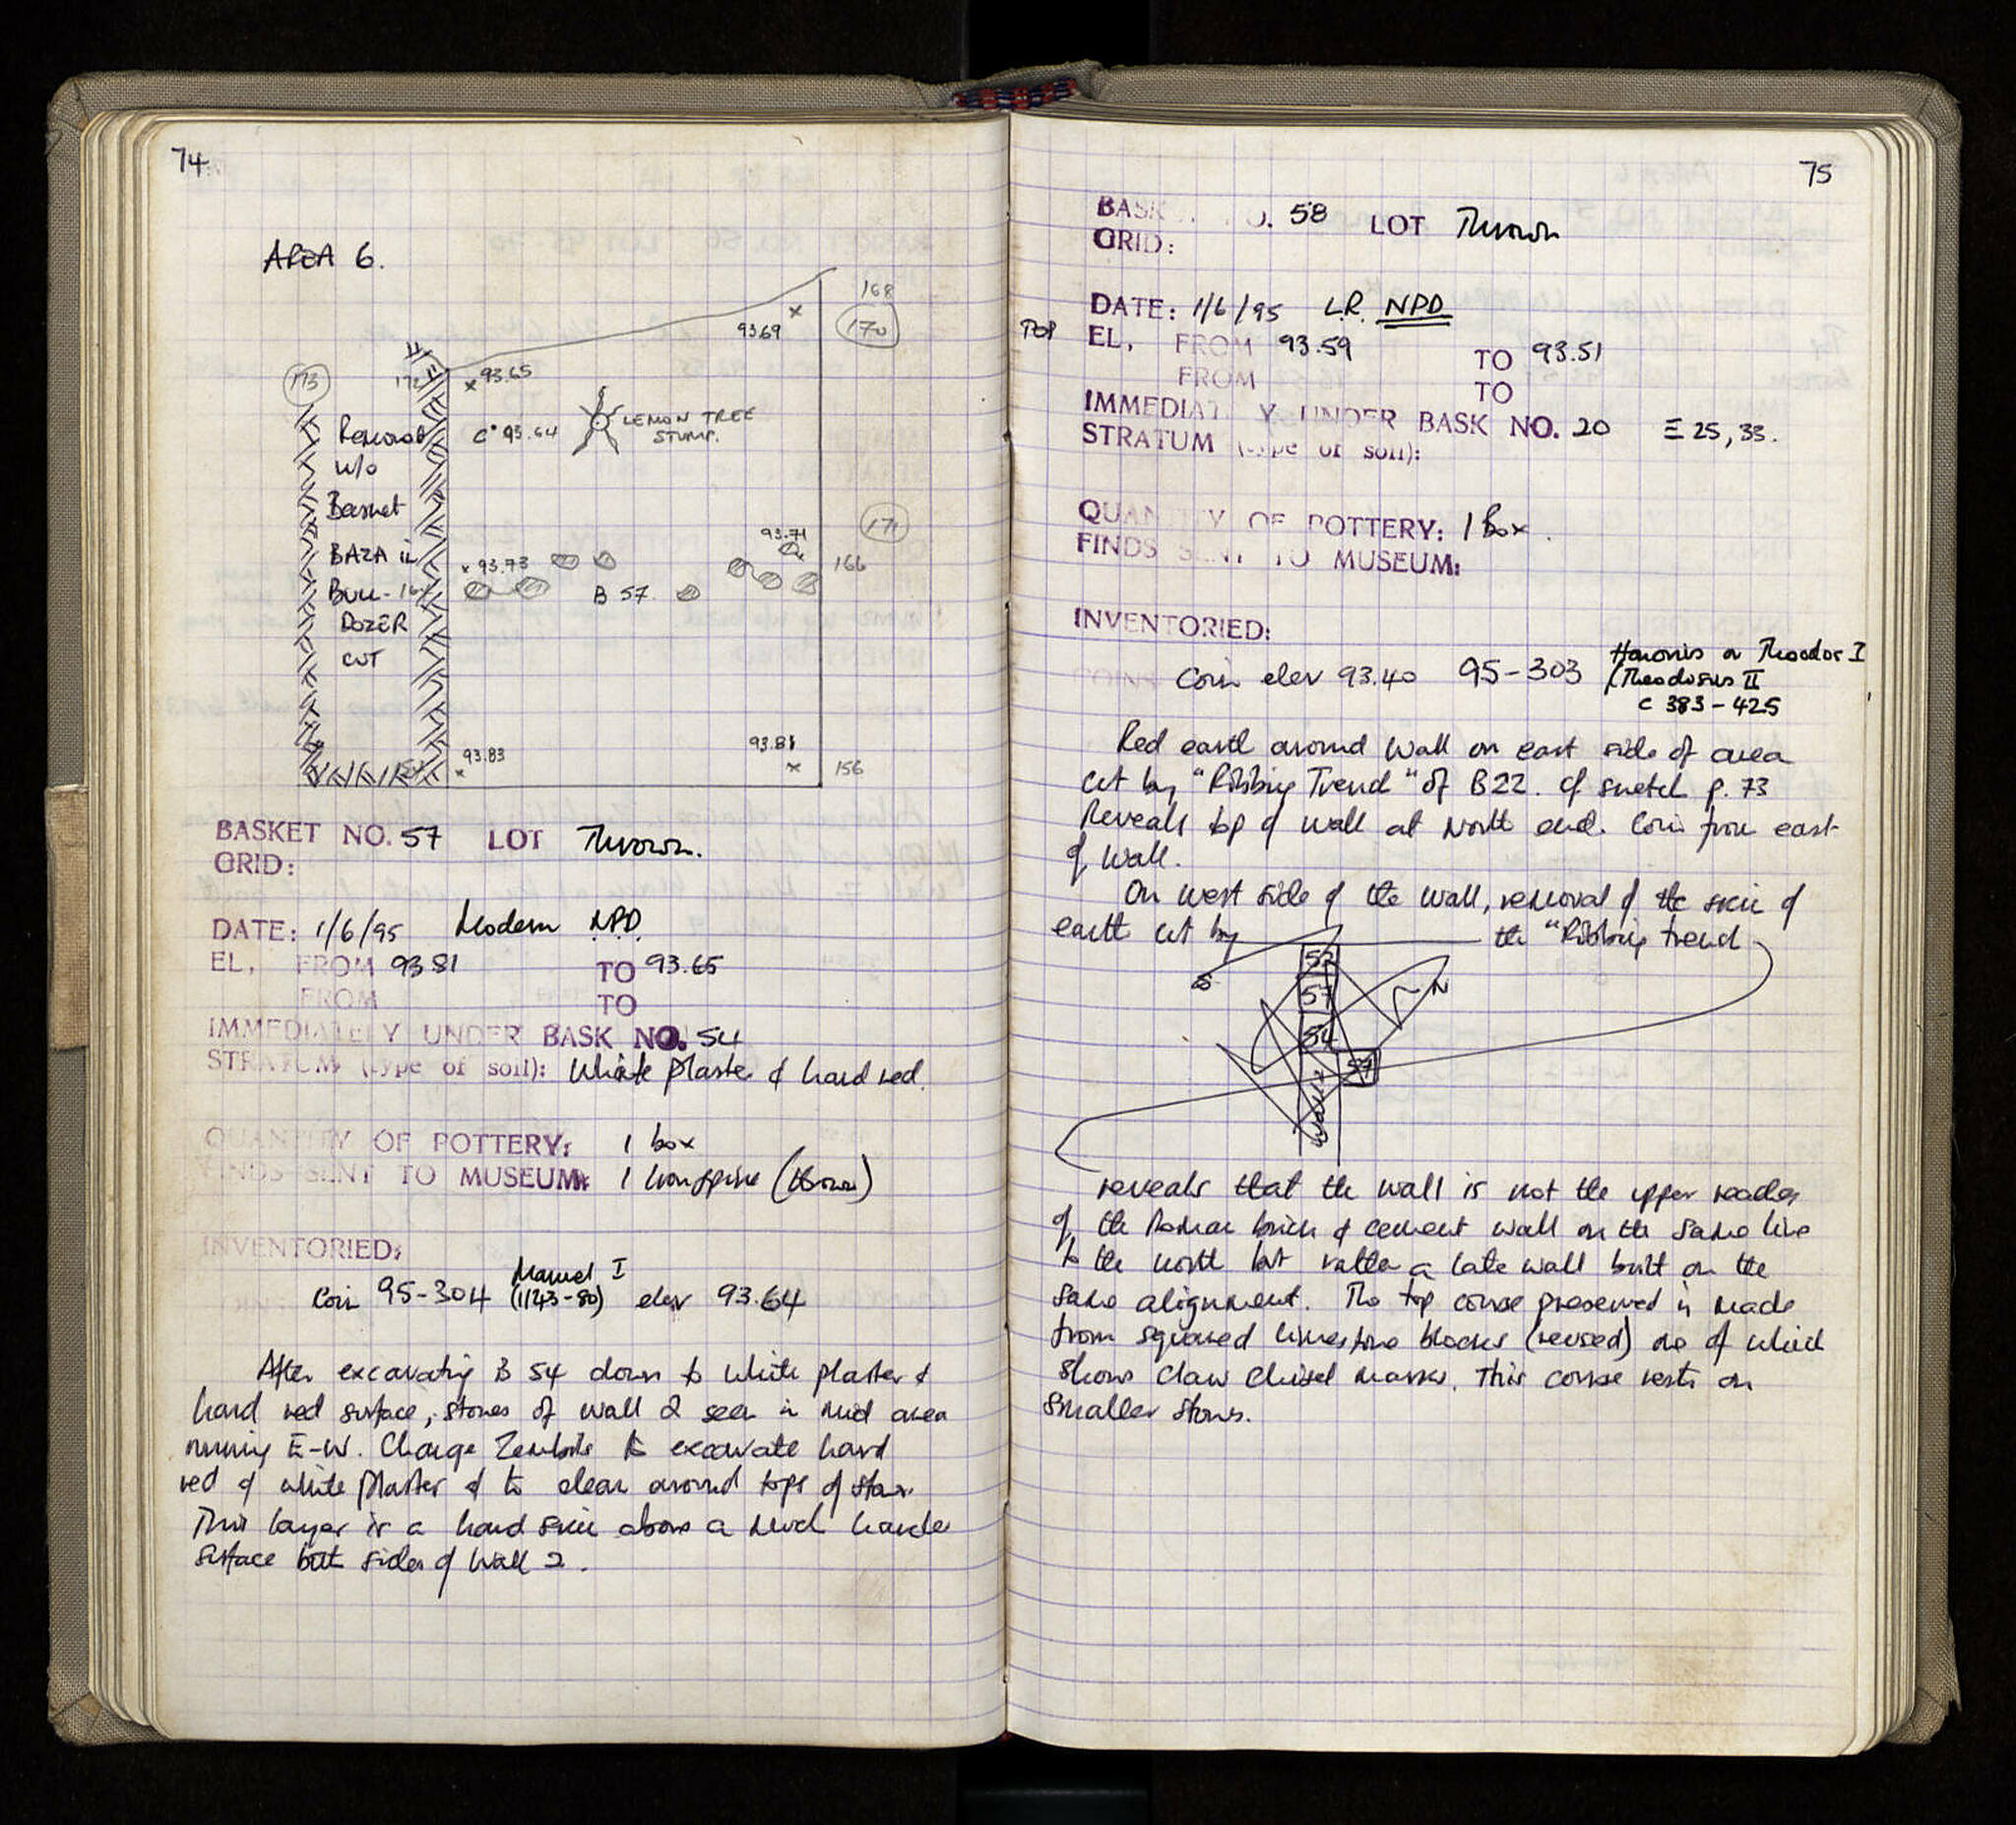 74
AREA 6.
168
93.69
170
173
172
93.65
Removed
C 93.64
LEMON TREE
STUMP.
w/o
Basket
93.71
171
BAZA in
93.73
166
BULL-
B 57
DOZER
CUT
93.83
93.81
156
BASKET NO. 57 LOT Thrown.
GRID:
DATE: 1/6/95 Modern NPD
EL, FROM 93 81 TO 93.65
FROM TO
IMMEDIATELY UNDER BASK NO. 54
STRATUM (type of soil): White plaster & hard red.
QUANTITY OF POTTERY: 1 box
FINDS SENT TO MUSEUM: 1 (thrown)
INVENTORIED:
Manuel I
Coin 95-304 (1143-80) elev 93.64
After excavating B 54 down to white plaster &
hard red surface, stones of wall 2 seen in mid area
running E-W. Change Zembils to excavate hard
red & white plaster & to clear around tops of stones.
This layer is a hard skin above a much harder
surface both sides of Wall 2.
75
BASK O. 58 LOT Thrown
GRID:
DATE: 1/6/95 L.R. NPD
TOP EL, FROM 93.59 TO 93.51
FROM TO
IMMEDIAT Y UNDER BASK NO. 20 = 25, 33.
STRATUM (type of soil):
QUANTITY OF POTTERY: 1 Box.
FINDS SENT TO MUSEUM:
INVENTORIED:
Honorius or Theodor I
COINS Coin elev 93.40 95-303 /Theodosius II
c 383-425
Red earth around wall on east side of area
cut by "Robbing Trench" of B22. cf sketch p. 73
Reveals top of wall at North end. Coin from east
of wall.
On west side of the wall, removal of the skin of
earth cut by the "Robbing trench
S
52
N
57
54
57
Wall 2
reveals that the wall is not the upper reaches
of the Roman brick & cement wall on the same line
to the north but rather a late wall built on the
same alignment. The top course preserved is made
from squared limestone blocks (reused) one of which
shows claw chisel marks. This course rests on
smaller stones.